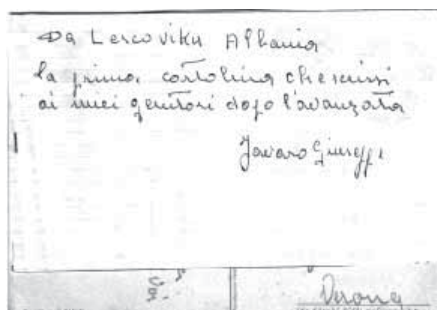 Da Lescoviku Albania
la prima cartolina che scrissi
ai miei genitori dopo l'avanzata
Giuseppe
Verona